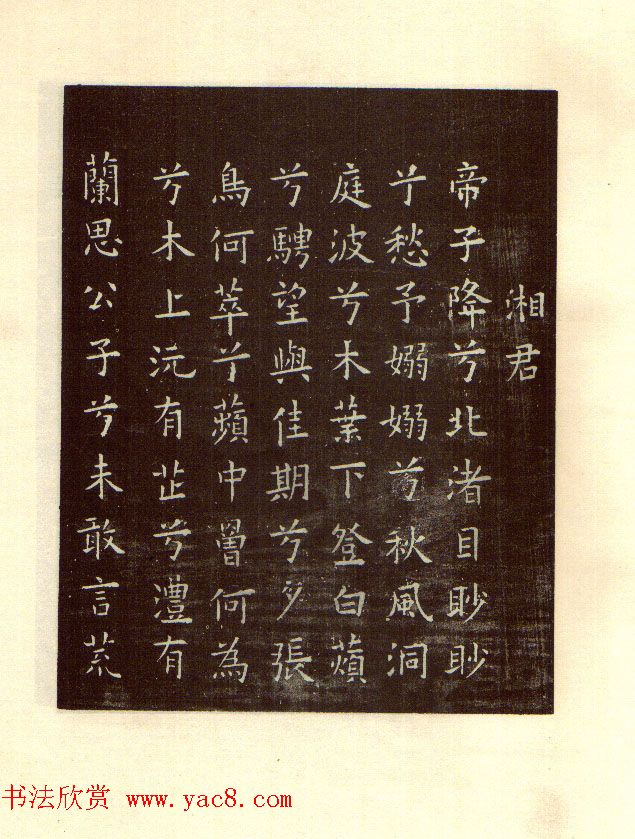 湘君
帝子降兮北渚目眇眇
兮愁予嫋嫋兮秋風洞
庭波兮木葉下登白蘋
兮騁望與佳期兮夕張
鳥何萃兮蘋中罾何為
兮木上沅有芷兮澧有
蘭思公子兮未敢言荒
书法欣赏 www.yac8.com